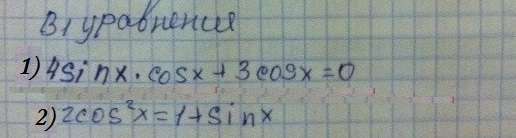 В1 уравнения
1) 4sinx·cosx+3cosx=0
2) 2cos²x=1+sinx